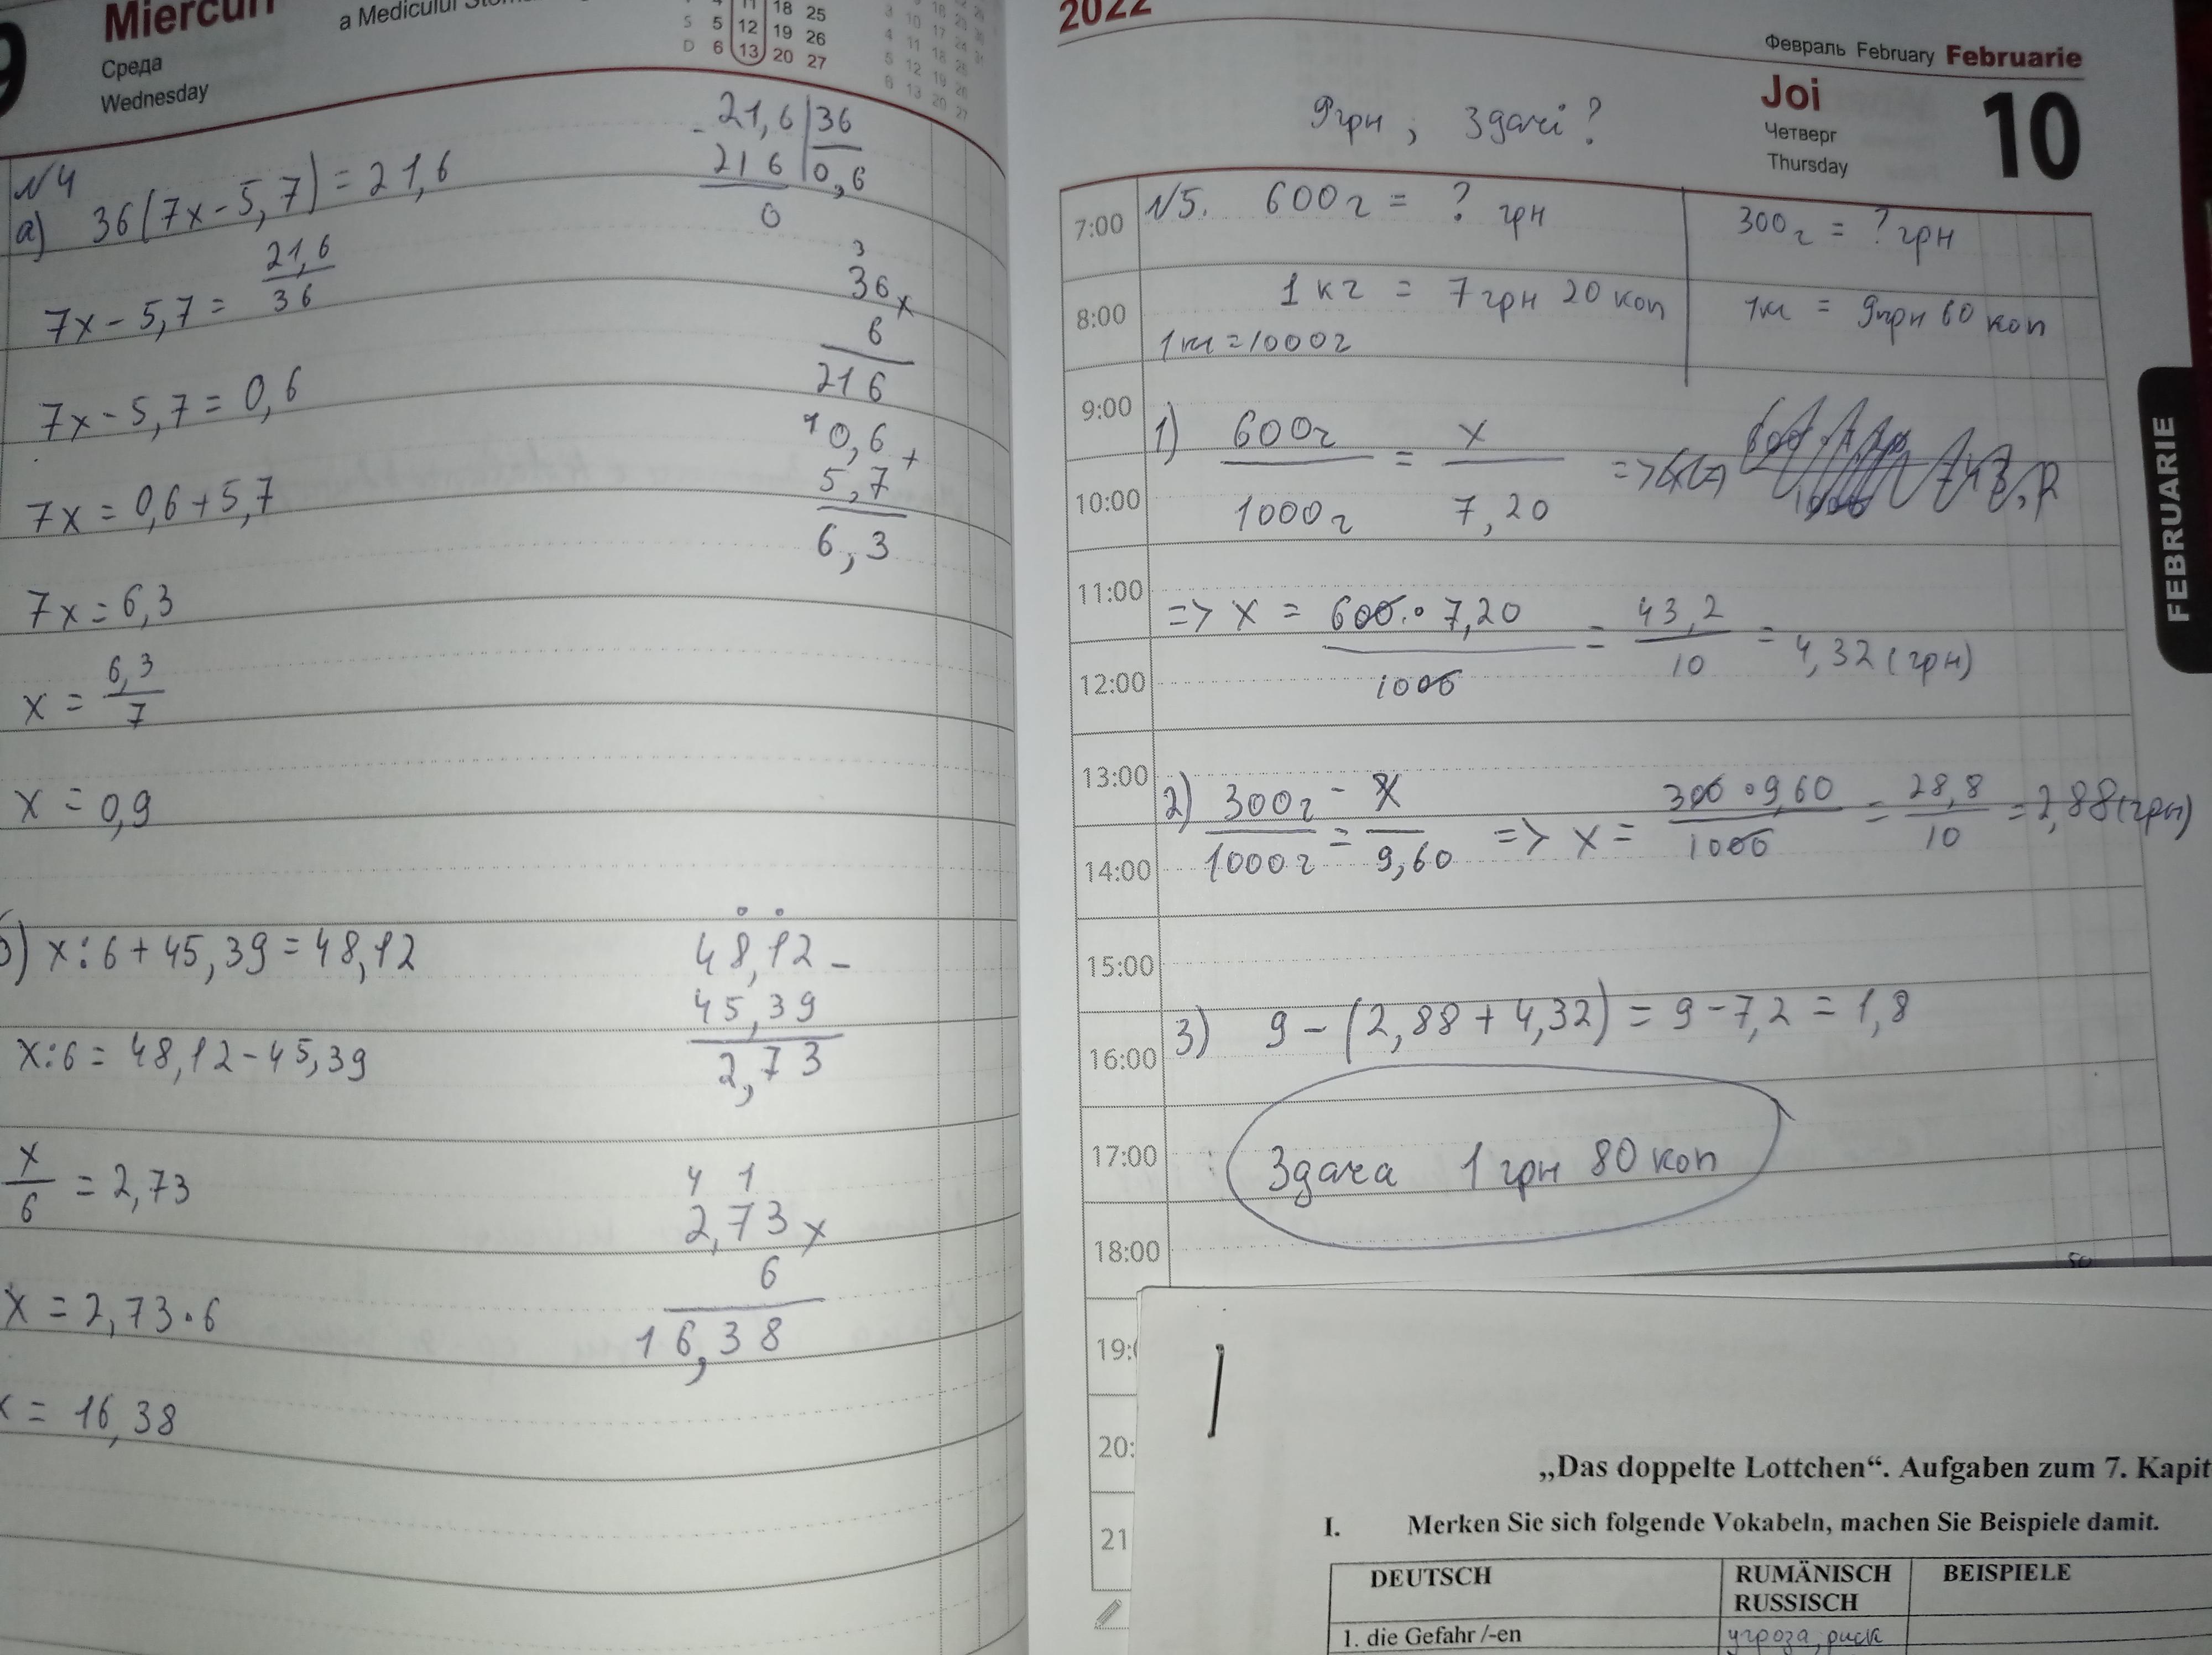 9 Miercuri
Среда
Wednesday
a Medicului
4 11 18 25
S 5 12 19 26
D 6 13 20 27
№4
а) 36(7x-5,7) = 21,6
7x - 5,7 = 21,6/36
7x - 5,7 = 0,6
7x = 0,6 + 5,7
7x = 6,3
x = 6,3/7
x = 0,9
б) x:6 + 45,39 = 48,12
x:6 = 48,12 - 45,39
x/6 = 2,73
x = 2,73 · 6
x = 16,38
- 21,6 | 36
216 | 0,6
0
3
36 x
6
216
1
0,6 +
5,7
6,3
48,12 -
45,39
2,73
4 1
2,73 x
6
16,38
2022
Февраль February Februarie
Joi
Четверг
Thursday
10
9грн ; Здачі ?
7:00 №5. 600г = ? грн | 300г = ? грн
8:00 1 кг = 7 грн 20 коп | 1кг = 9грн 60 коп
1кг = 1000г
9:00
1) 600г/1000г = x/7,20 =>
10:00
11:00
=> x = 600 · 7,20/1000 = 43,2/10 = 4,32 (грн)
12:00
13:00
2) 300г/1000г = x/9,60 => x = 300 · 9,60/1000 = 28,8/10 = 2,88 (грн)
14:00
15:00
3) 9 - (2,88 + 4,32) = 9 - 7,2 = 1,8
16:00
17:00 Здача 1 грн 80 коп
18:00
19:
20:
21
FEBRUARIE
„Das doppelte Lottchen“. Aufgaben zum 7. Kapit
I. Merken Sie sich folgende Vokabeln, machen Sie Beispiele damit.
DEUTSCH RUMÄNISCH BEISPIELE
RUSSISCH
1. die Gefahr /-en угроза, риск